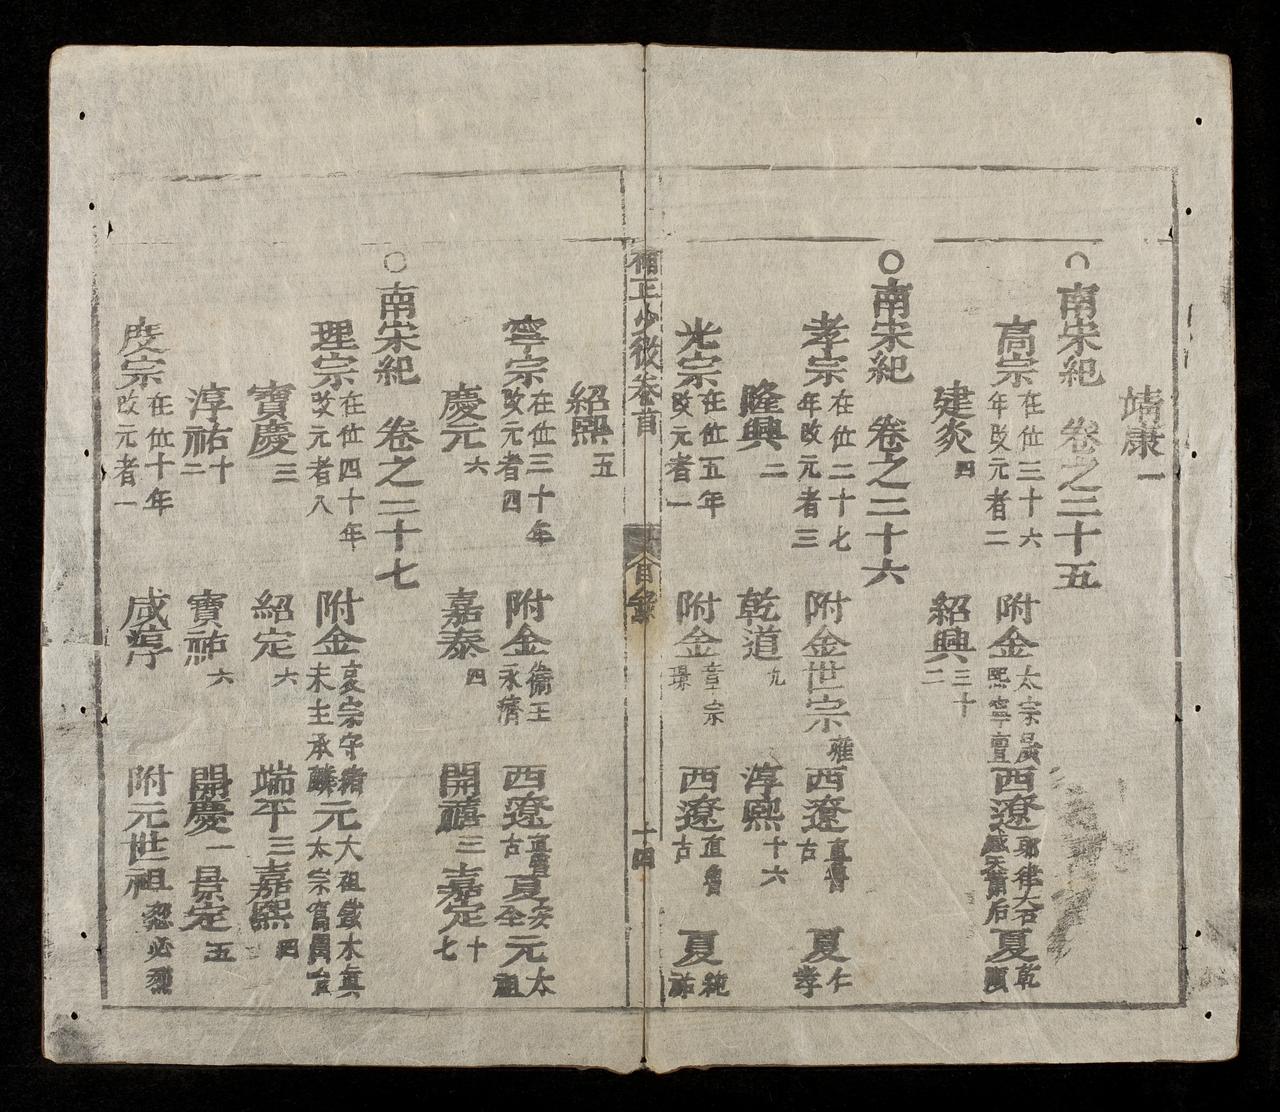 靖康一
○南宋紀　卷之三十五
高宗在位三十六年改元者二　附金太宗晟熙宗亶　西遼耶律大石感天蕭后　夏乾順
建炎四　紹興三十二
○南宋紀　卷之三十六
孝宗在位二十七年改元者三　附金世宗雍　西遼直魯古　夏仁孝
隆興二　乾道九　淳熙十六
光宗在位五年改元者一　附金章宗璟　西遼直魯古　夏純祐
補正少微卷首　目錄　十四
紹熙五
寧宗在位三十年改元者四　附金衞王永濟　西遼直魯古　夏安全　元太祖
慶元六　嘉泰四　開禧三　嘉定十七
○南宋紀　卷之三十七
理宗在位四十年改元者八　附金哀宗守緒末主承麟　元太祖鐵木真太宗窩闊台
寶慶三　紹定六　端平三　嘉熙四
淳祐十二　寶祐六　開慶一　景定五
度宗在位十年改元者一　咸淳　附元世祖忽必烈